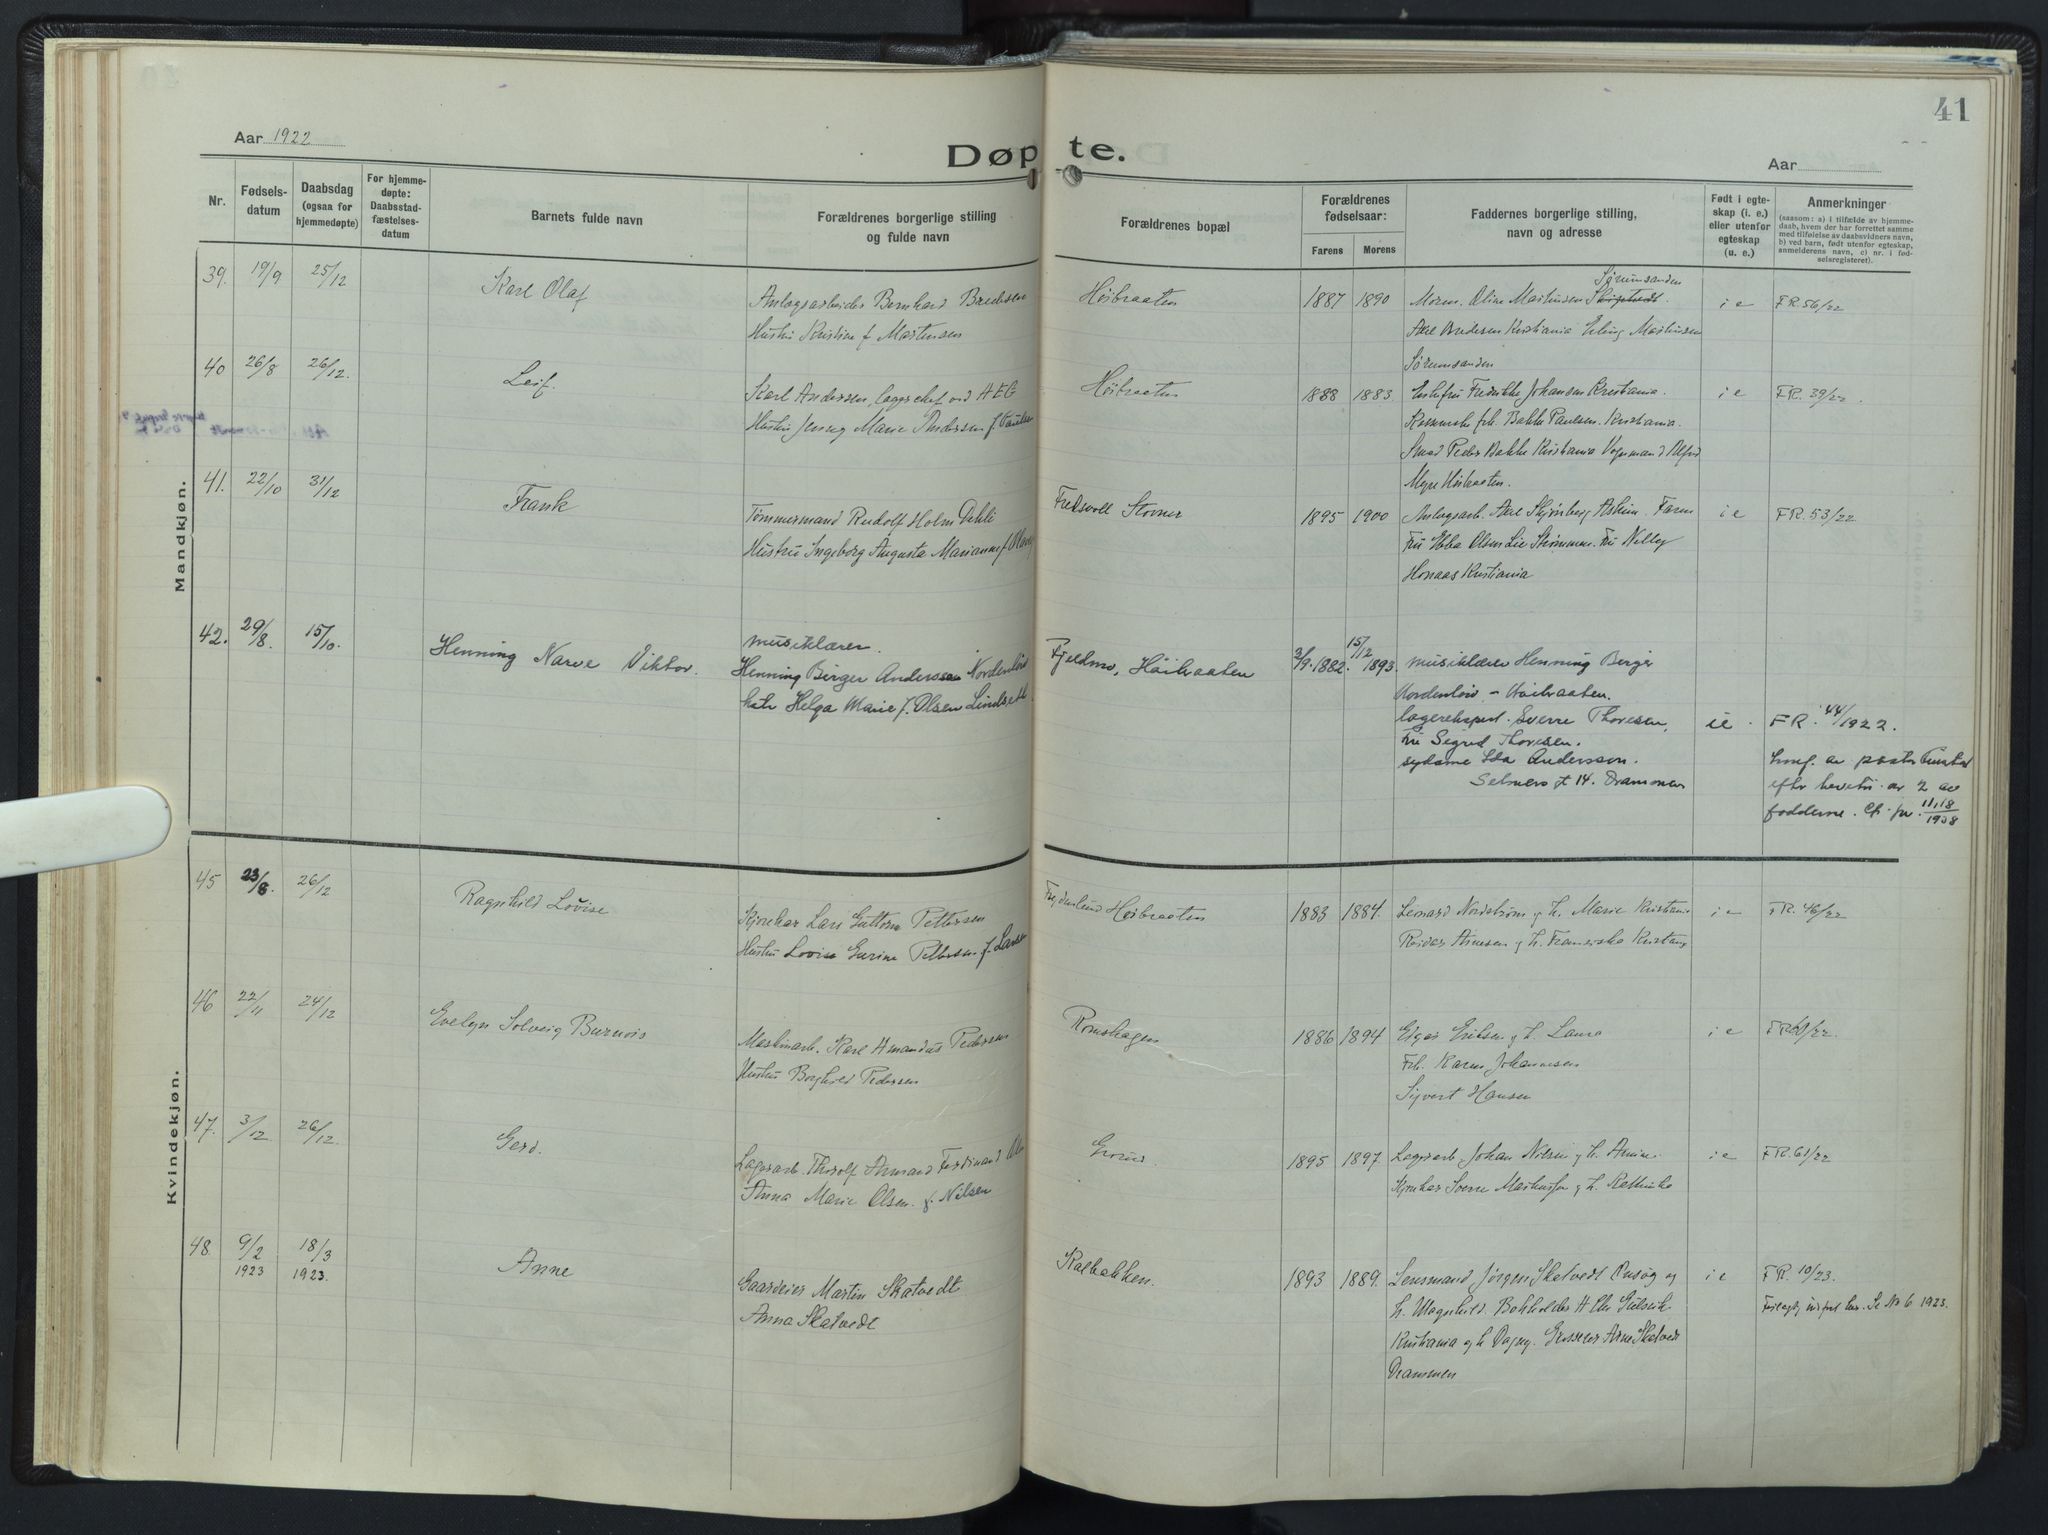 41
Aar 1922
Døpte.
Aar
Nr.
Fødsels-
datum
Daabsdag
(ogsaa for
hjemmedøpte)
For hjemme-
døpte:
Daabsstad-
fæstelses-
datum
Barnets fulde navn
Forældrenes borgerlige stilling
og fulde navn
Forældrenes bopæl
Forældrenes
fødselsaar:
Farens
Mørens
Faddernes borgerlige stilling,
navn og adresse
Født i egte-
skap (i. e.)
eller utenfor
egteskap
(u. e.)
Anmerkninger
(saasom: a) i tilfælde av hjemme-
daab, hvem der har forrettet samme
med tilføielse av daabsvidners navn,
b) ved barn, født utenfor egteskap,
anmelderens navn, c) nr. i fød-
selsregisteret).
Mandkjøn.
39. 19/9 25/12 Karl Olaf
Anlægsarbeider Bernhard Bredesen
Hustru Kristine f. Martinsen
Høibraaten 1887 1890
Sørumsanden
Morm. Oline Martinsen
Axel Bredesen Kristiania Erling Martinsen
Sørumsanden
i e FR 56/22
40 26/8 26/12. Leif.
Karl Andersen, lagerchef ved AEG
Hustru Jenny Marie Andersen f. Paulsen
Høibraaten 1888 1883
Fredrikke Johansen Kristiania.
frk. Bakke Paulsen. Kristiania.
Smed Peder Bakke Kristiania Alfred
Myre Høibraaten.
i e FR. 39/22
41. 22/10 31/12 Frank
Tømmermand Rudolf Holm Dehli
Hustru Ingeborg Augusta Marianne f.
Fredsvoll Stovner 1895 1900
Anlægsarb. Axel Skjønberg Askim.
Fru Ebba Olsen Lie Strømmen. Fru Nelly
Honaas Kristiania
i e FR. 53/22
42. 29/8. 15/10. Henning Narve Viktor.
musiklærer.
Henning Birger Anderssen Nordenløv
Helga Marie f. Olsen Lindseth
Fjeldmo, Høibraaten 3/9.1882. 15/12 1893.
musiklærer Henning Birger
Nordenløv – Høibraaten.
lagerekspert. Sverre Thoresen,
Fru Sigrid Thoresen.
sydame Ida Anderssen.
Selmers gt 14. Drammen
ie. FR. 44/1922.
av pastor
efter av 2 av
fadderne. 11,18/1938
Kvindekjøn.
45 23/8. 26/12 Ragnhild Lovise
Kjørekar Lars Guttorm Pettersen
Hustru Lovise Gurine Pettersen f. Larsen
Frydenlund Høibraaten 1883 1884.
Leonard Nordstrøm og h. Marie Kristiania
Reidar Arnesen og h. Franciska Kristiania
i e FR. 46/22
46 22/11 24/12 Evelyn Solveig Burnois
Maskinarb. Karl Amandus Pedersen
Hustru Borghild Pedersen
Romshagen 1886 1894
Eriksen og h. Laura
Frk. Karen Johannesen
Sigvart Hansen
i e FR 60/22.
47. 3/12 26/12. Gerd.
Lagerarb. Thorolf Armand Ferdinand
Anna Marie Olsen. f. Nilsen
Grorud. 1895 1897.
Lagerarb Johan Nilsen og h.
Kjørekar Sverre og h.
i e FR. 61/22
48 9/2 1923 18/3 1923. Anne
Gaardeier Martin Skatvedt
Anna Skatvedt
Kalbakken. 1893 1889.
Lensmand Jørgen Skatvedt og
h. Bokholder
Kristiania og h Dagny. Grosserer Arne Skatvedt
Drammen
i e FR. 10/23.
Se No 6 1923.